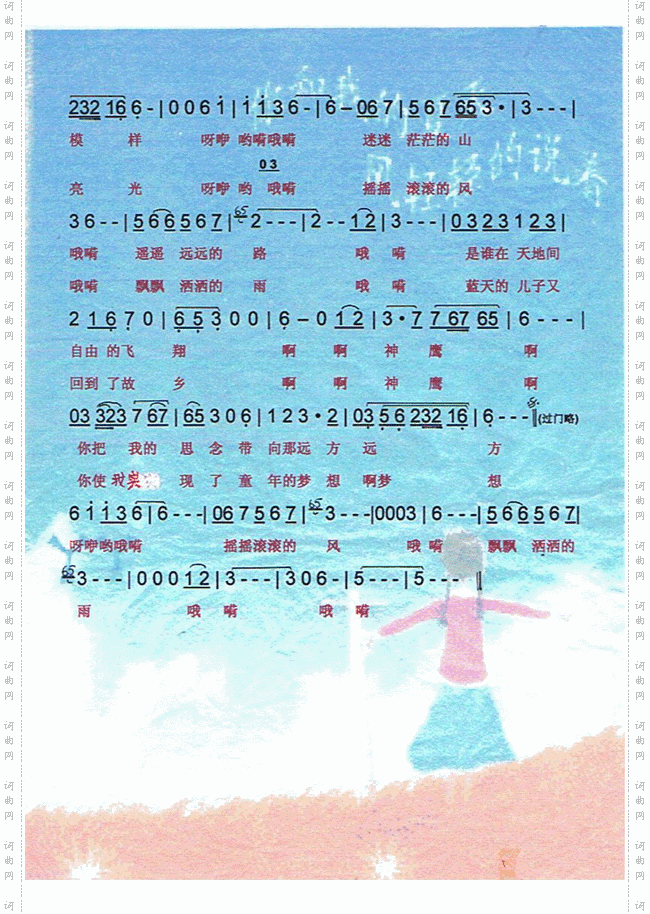 232 16 6 - | 0 0 6 i | i i 3 6 - | 6 – 0 6 7 | 5 6 7 65 3 · | 3 - - - |
模 样 呀咿 哟嗬哦嗬 迷迷 茫茫的 山
0 3
亮 光 呀咿 哟 哦嗬 摇摇 滚滚的 风
3 6 - - | 5 6 6 5 6 7 | 65 2 - - - | 2 - - 1 2 | 3 - - - | 0 3 2 3 1 2 3 |
哦嗬 遥遥 远远的 路 哦 嗬 是谁在 天地间
哦嗬 飘飘 洒洒的 雨 哦 嗬 蓝天的 儿子又
2 1 6 7 0 | 6 5 3 0 0 | 6 – 0 1 2 | 3 · 7 7 67 65 | 6 - - - |
自由 的飞 翔 啊 啊 神 鹰 啊
回到 了故 乡 啊 啊 神 鹰 啊
03 323 7 67 | 65 3 0 6 | 1 2 3 · 2 | 03 5 6 232 16 | 6 - - - ‖ (过门略)
你把 我的 思 念 带 向那远 方 远 方
你使 我实 现 了 童 年的梦 想 啊梦 想
6 i i 3 6 | 6 - - - | 0 6 7 5 6 7 | 65 3 - - - | 0003 | 6 - - - | 5 6 6 5 6 7 |
呀咿哟哦嗬 摇摇滚滚的 风 哦 嗬 飘飘 洒洒的
65 3 - - - | 0 0 0 1 2 | 3 - - - | 3 0 6 - | 5 - - - | 5 - - - ‖
雨 哦 嗬 哦 嗬
词曲网